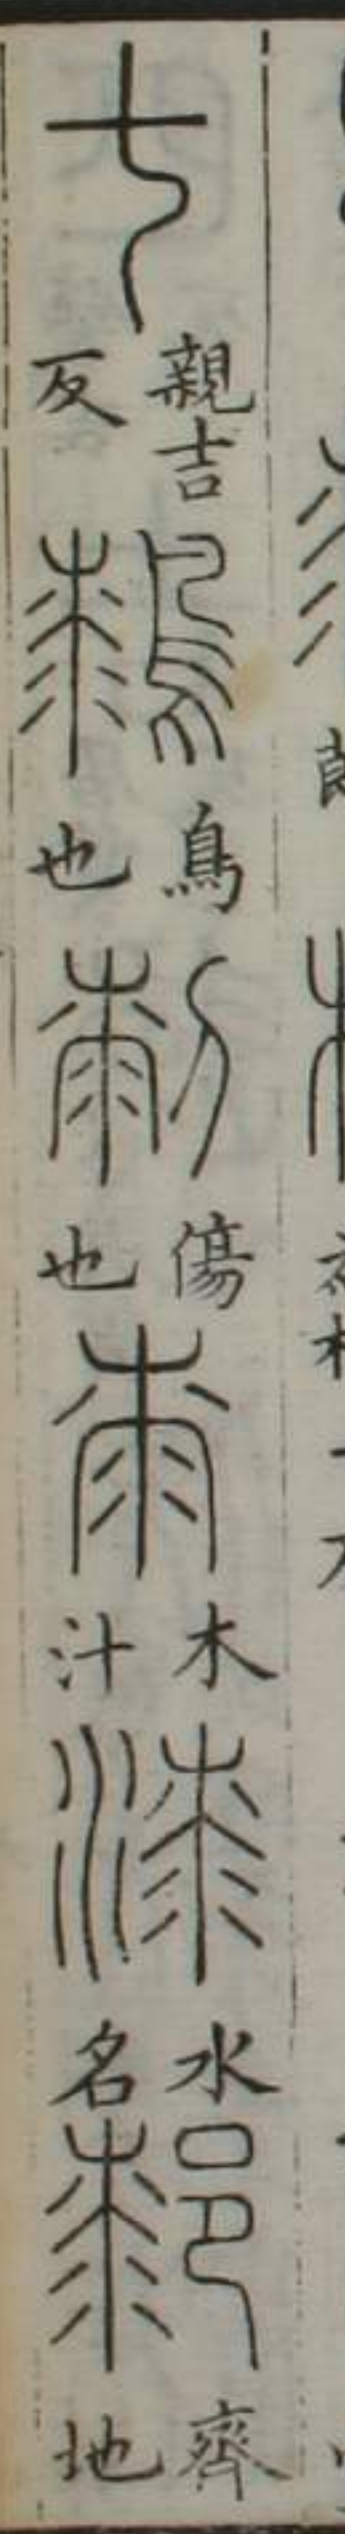 七親吉反鳥也傷也桼木汁漆水名齊地